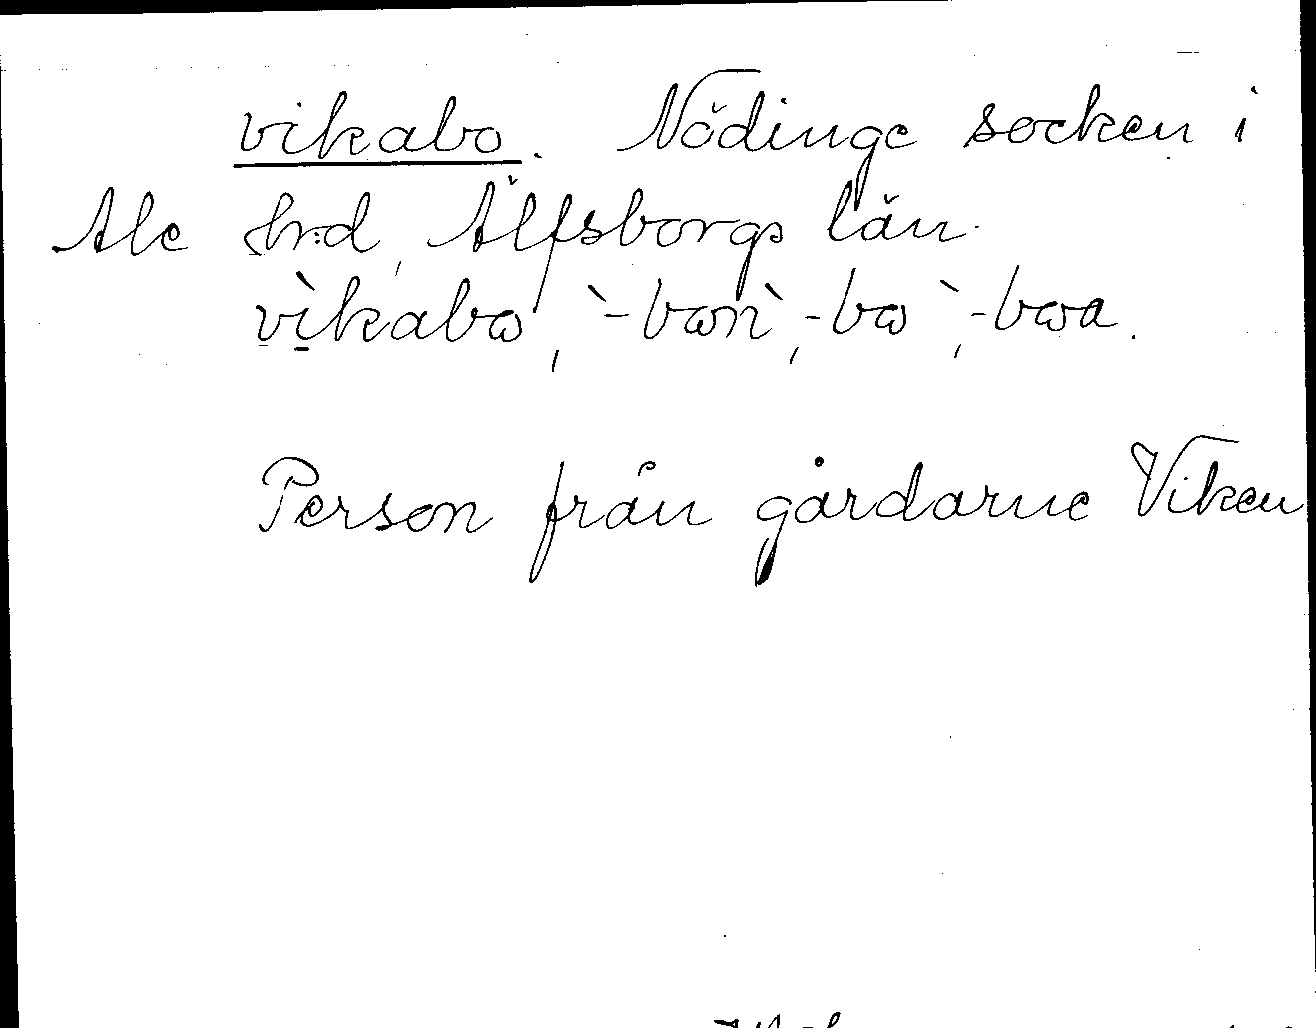 vikabo. Nödinge socken i
Ale hrd, Älfsborgs län.
vìkabω, `-bωn, `-bω, `-bωa.
Person från gårdarne Viken